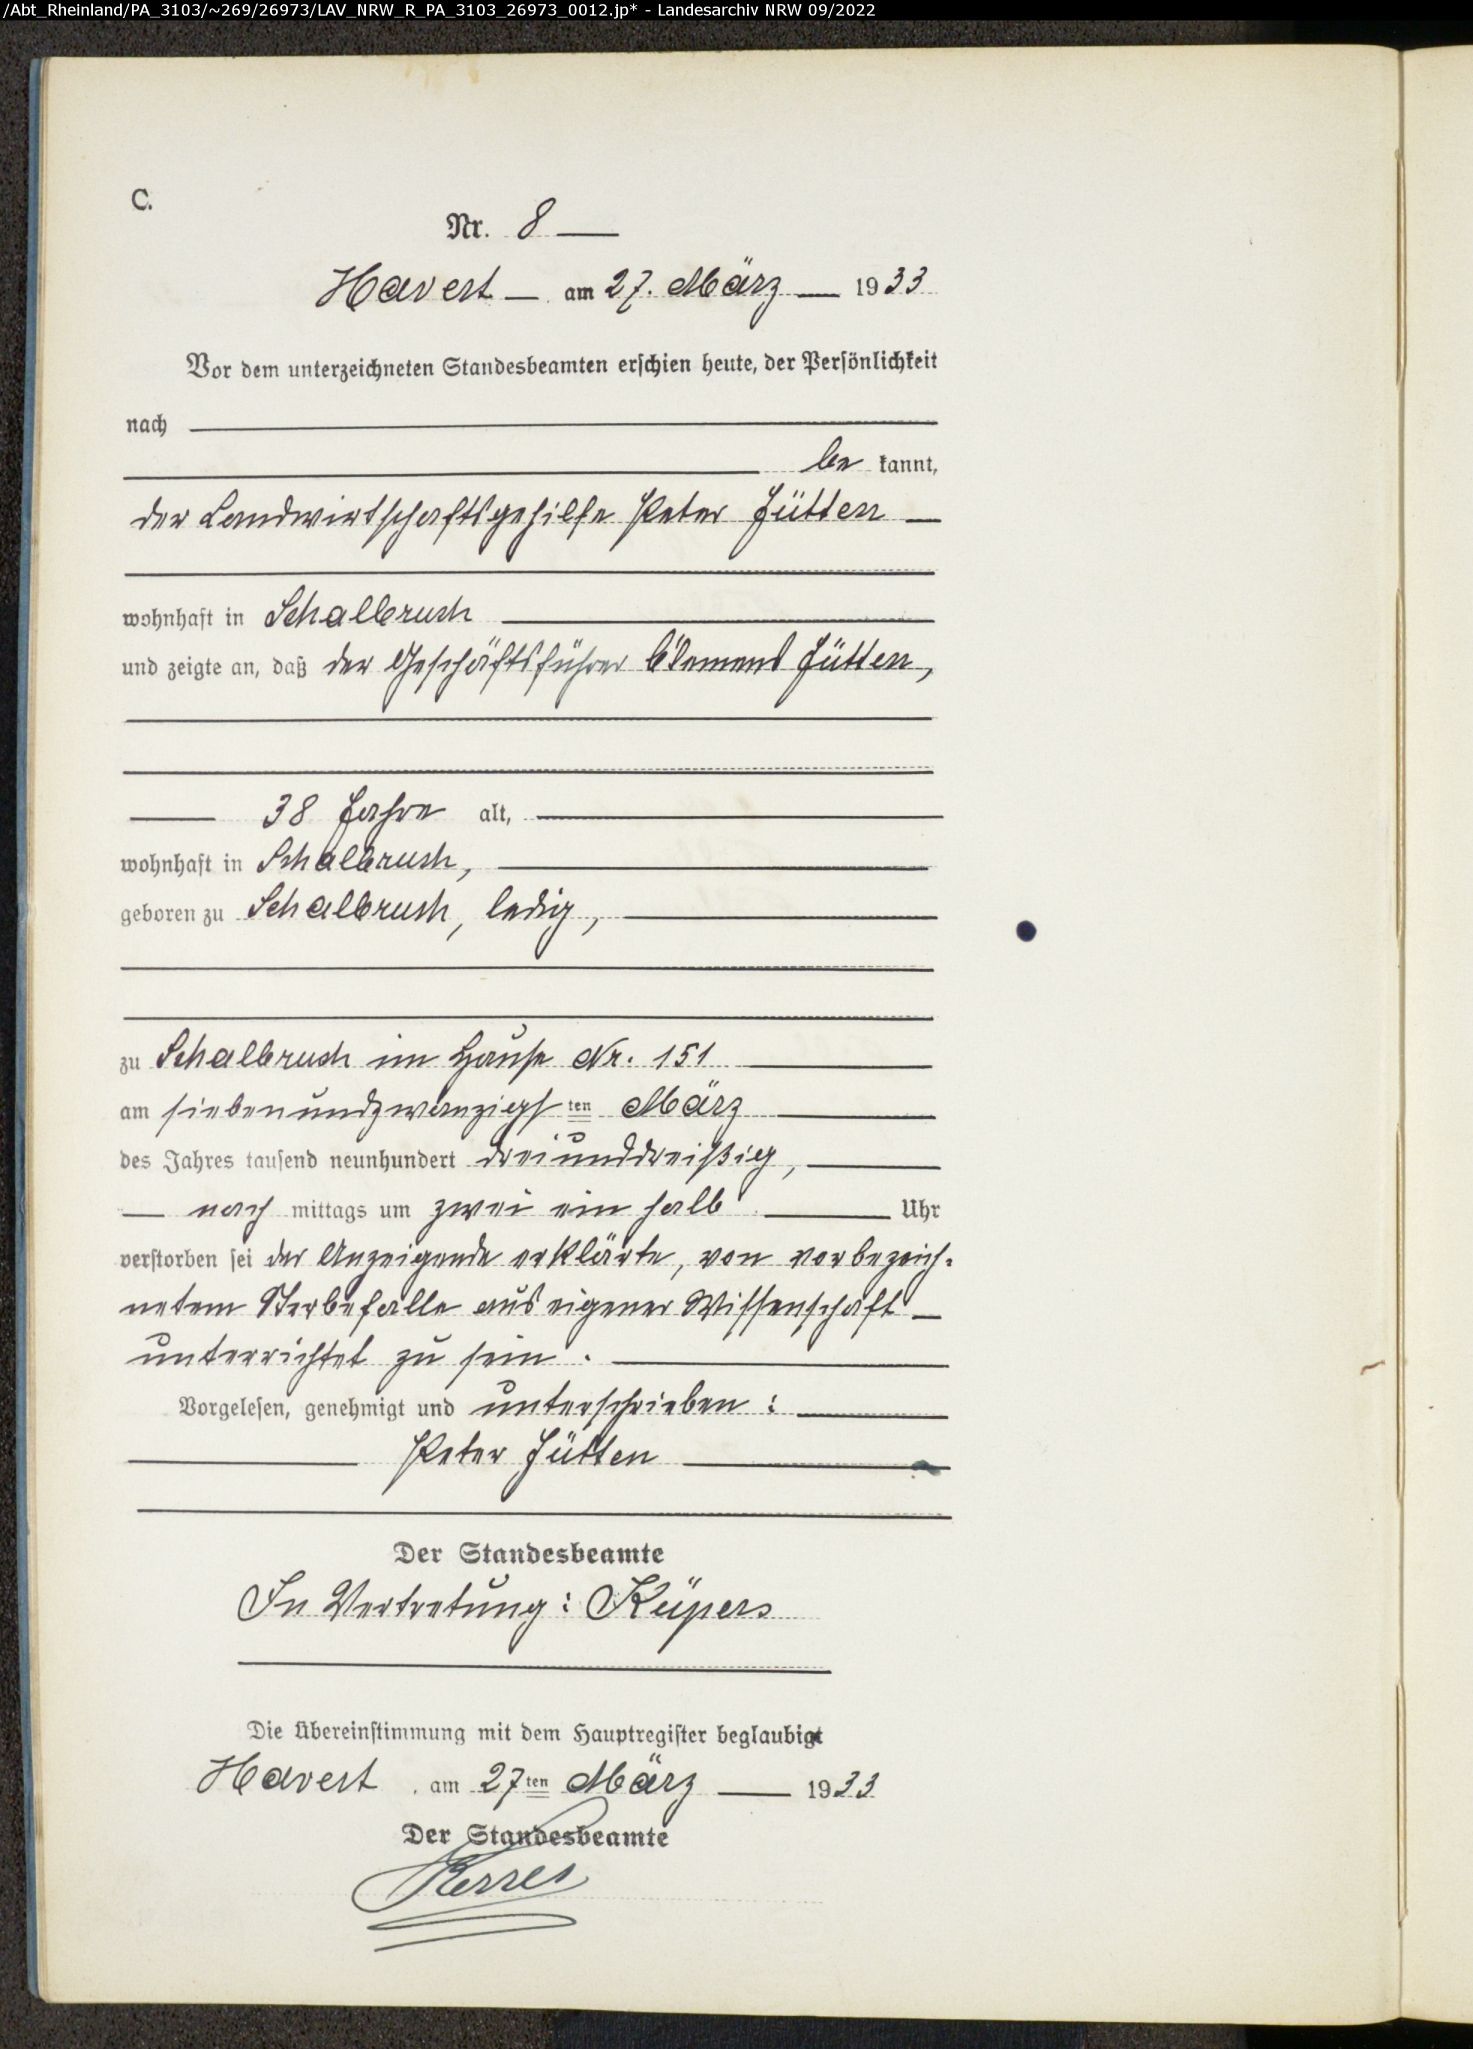 /Abt_Rheinland/PA_3103/~269/26973/LAV_NRW_R_PA_3103_26973_0012.jp* - Landesarchiv NRW 09/2022
C.
Nr. 8
Havert am 27. März 1933
Vor dem unterzeichneten Standesbeamten erschien heute, der Persönlichkeit
nach
be kannt,
der Landwirtschaftsgehilfe Peter Jütten
wohnhaft in Schalbruch
und zeigte an, daß der Geschäftsführer Clemens Jütten,
38 Jahre alt,
wohnhaft in Schalbruch,
geboren zu Schalbruch, ledig,
zu Schalbruch im Hause Nr. 151
am siebenundzwanzigsten März
des Jahres tausend neunhundert dreiunddreißig,
nach mittags um zwei ein halb Uhr
verstorben sei der Anzeigende erklärte, von vorbezeich-
netem Sterbefalle aus eigener Wissenschaft
unterrichtet zu sein.
Vorgelesen, genehmigt und unterschrieben:
Peter Jütten
Der Standesbeamte
In Vertretung: Küpers
Die Übereinstimmung mit dem Hauptregister beglaubigt
Havert am 27ten März 1933
Der Standesbeamte
Kerres